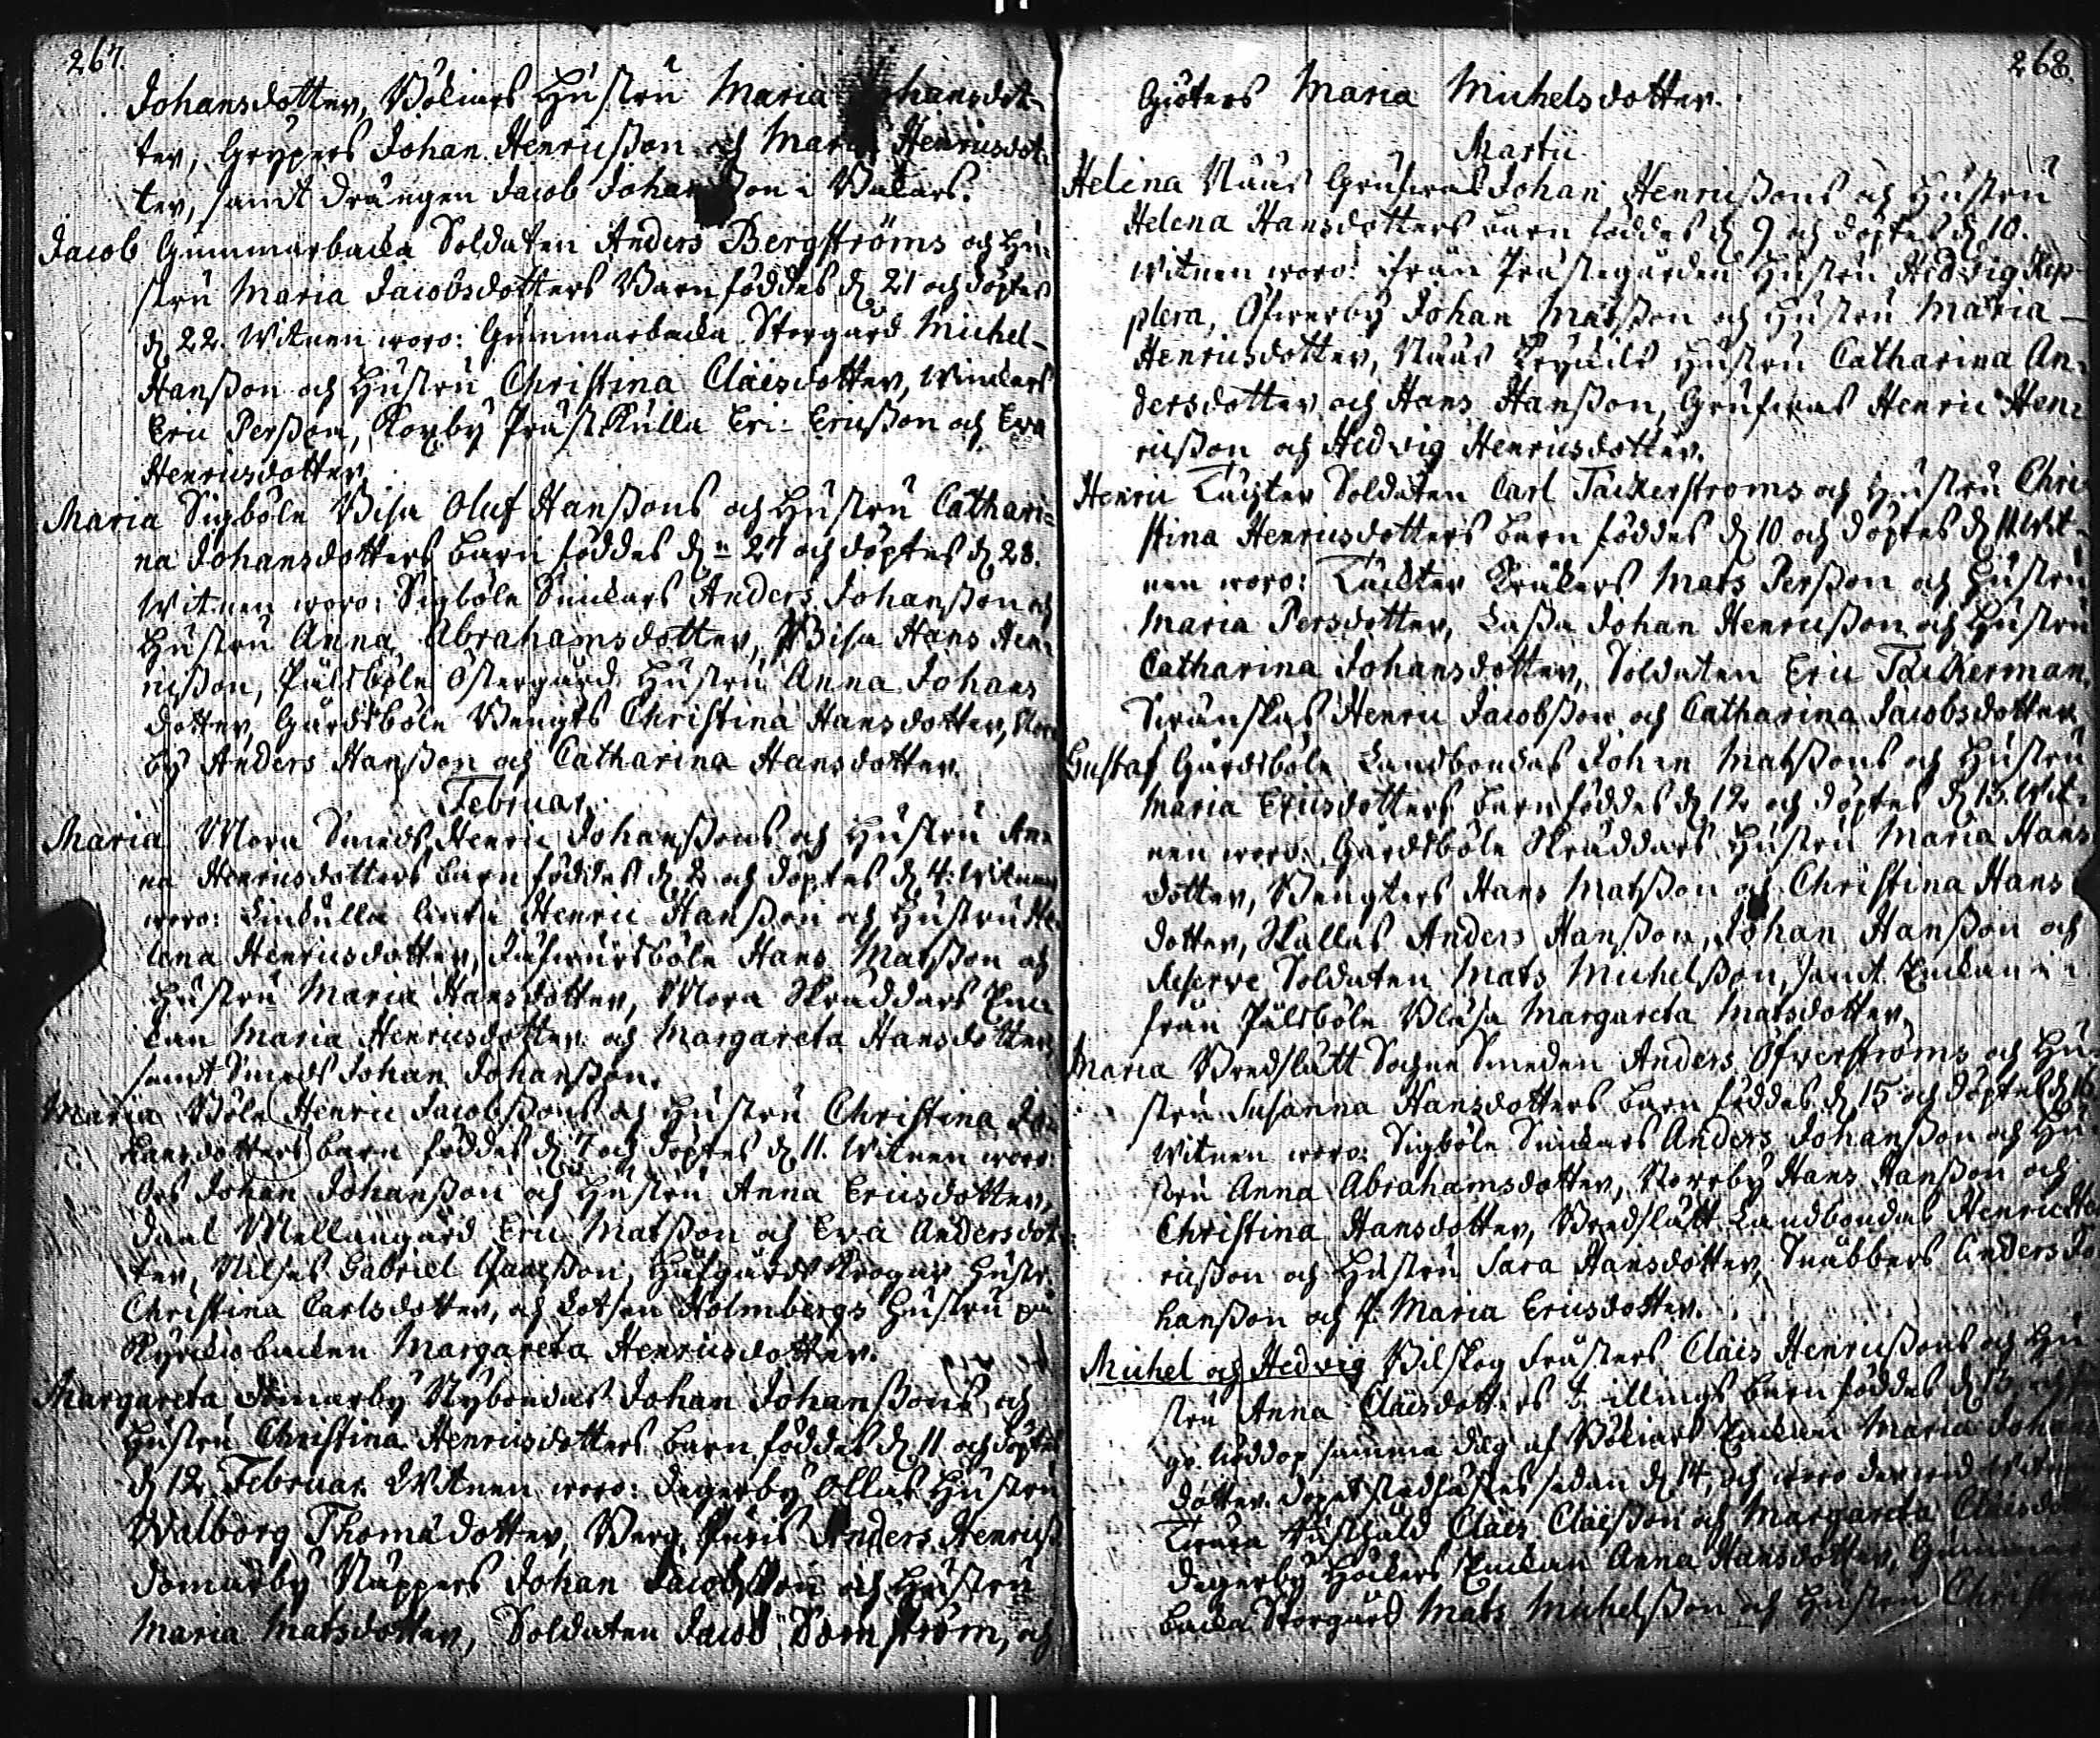 267.
Johansdotter, Bökars Hustru Maria Johansdot-
ter, Grepers Johan Henricßon och Maria Henricsdot-
ter, samt drängen Jacob Johanßon i Backars.
Jacob Gummarbacka Soldaten Anders Bergströms och Hu-
stru Maria Jacobsdotters Barn föddes d. 21 och döptes
d. 22. Witnen woro: Gummarbacka Storgård Michel
Hanßon och Hustru Christina Claësdotter, Winckars
Eric Perßon, Prästkulla Eric Ericßon och Eva
Henricsdotter.
Maria Sigböle Wisa Oluf Hanßons och Hustru Cathari-
na Johansdotters barn föddes d. 27 och döptes d. 28.
Witnen woro: Sigböle Simckars Anders Johanßon och
Hustru Anna Abrahamsdotter, Wisa Hans Hen-
ricßon, Påldböle Östergård Hustru Anna Johans
dotter, Gårdsböle Bengts Christina Hansdotter, Nor-
by Anders Hanßon och Catharina Hansdotter.
Februar.
Maria Mora Smeds Henric Johanßons och Hustru An-
na Henricsdotters barn föddes d. 2 och döptes d. 4. Witnen
woro: Henric Hanßon och Hustru He-
lena Henricsdotter, Hans Matßon och
Hustru Maria Hansdotter, Mora Skräddars Enc-
kan Maria Henricsdotter och Margareta Hansdotter
samt Smeds Johan Johanßon.
Maria Böle Henric Jacobßons och Hustru Christina Jo-
hansdotters barn föddes d. 7 och döptes d. 11. Witnen woro:
Ors Johan Johanßon och Hustru Anna Ericsdotter,
Daal Mellangård Eric Matßon och Eva Andersdot-
ter, Nilses Gabriel Isaacßon, Krogar Hustr.
Christina Carlsdotter, och Lotsen Holmbergs Hustru på
Kyrckiobacken Margareta Henricsdotter.
Margareta Domarby Nybondas Johan Johanßons och
Hustru Christina Henricsdotters barn föddes d. 11 och döptes
d. 12 Februar. Witnen woro: Degerby Ollas Hustru
Walborg Thomædotter, Anders Henricß.
Domarby Näppers Johan Jacobßon och Hustru
Maria Matsdotter, Soldaten Jacob Domström, och
268.
Giöters Maria Michelsdotter.
Martii
Helena Näås Grufwas Johan Henricßons och Hustru
Helena Hansdotters barn föddes d. 9 och döptes d. 10.
Witnen woro: ifrån Prästegården Hustru Hedvig Kep-
plera, Öfwerby Johan Matsßon och Hustru Maria
Henricsdotter, Näås Hustru Catharina An-
dersdotter och Hans Hanßon, Grufwas Henric Hen-
ricßon och Hedvig Henricsdotter.
Henric Täckter Soldaten Carl Täckerströms och Hustru Chri-
stina Henricsdotters barn föddes d. 10 och döptes d. 11. Wit-
nen woro: Täckter Kråkers Mats Perßon och Hustru
Maria Persdotter, Laßa Johan Henricßon och Hustru
Catharina Johansdotter, Soldaten Eric Täckerman,
Henric Jacobßon och Catharina Jacobsdotter
Gustaf Gårdsböle Landbondas Johan Matsßons och Hustru
Maria Ericsdotters barn föddes d. 12 och döptes d. 13. Wit-
nen woro: Gårdsböle Skräddars Hustru Maria Hans
dotter, Bengters Hans Matsßon och Christina Hans
dotter, Skallas Anders Hanßon, Johan Hanßon och
Reserve Soldaten Mats Michelßon, samt Enckan
från Påldböle Blåsa Margareta Matsdotter.
Maria Bredslätt Sochne Smeden Anders Öfverströms och Hu-
stru Susanna Hansdotters barn föddes d. 15 och döptes d. 16
Witnen woro: Sigböle Simckars Anders Johanßon och Hu-
stru Anna Abrahamsdotter, Norrby Hans Hanßon och
Christina Hansdotter, Bredslätt Landbondas Henric Hen-
ricßon och Hustru Sara Hansdotter, Snäbbers Anders Jo-
hanßon och P. Maria Ericsdotter.
Michel och Hedvig Wilskog Frusters Claës Henricßons och Hu
stru Anna Claësdotters tvillings barn föddes d.
nöddop samma dag af Bökars Enckan Maria Johans
dotter. Dopet stadfästes sedan d. 14, och woro derwid Witnen
Claës Claësßon och Margareta Claësdotter
Degerby Höckers Enckan Anna Hansdotter, Gummar
backa Storgård Mats Michelßon och Hustru Christina